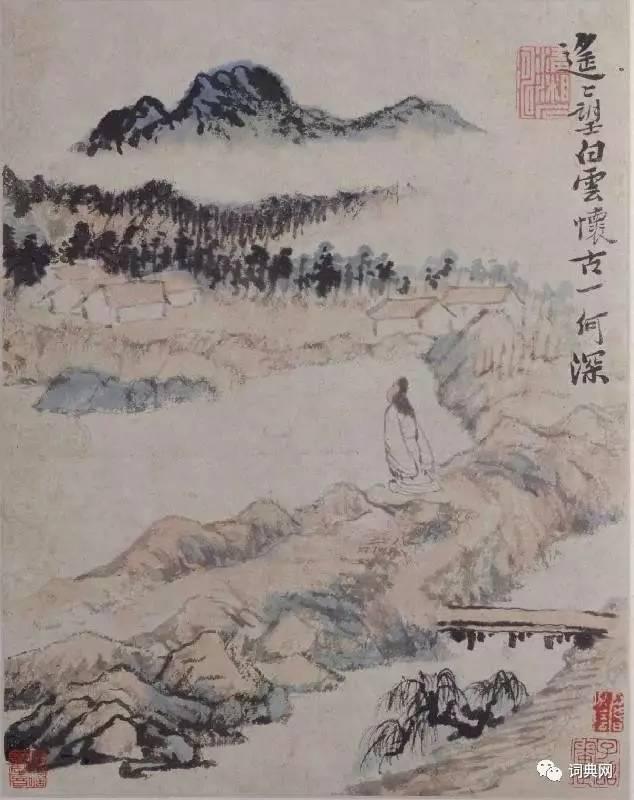 遙〻望白雲懷古一何深
词典网